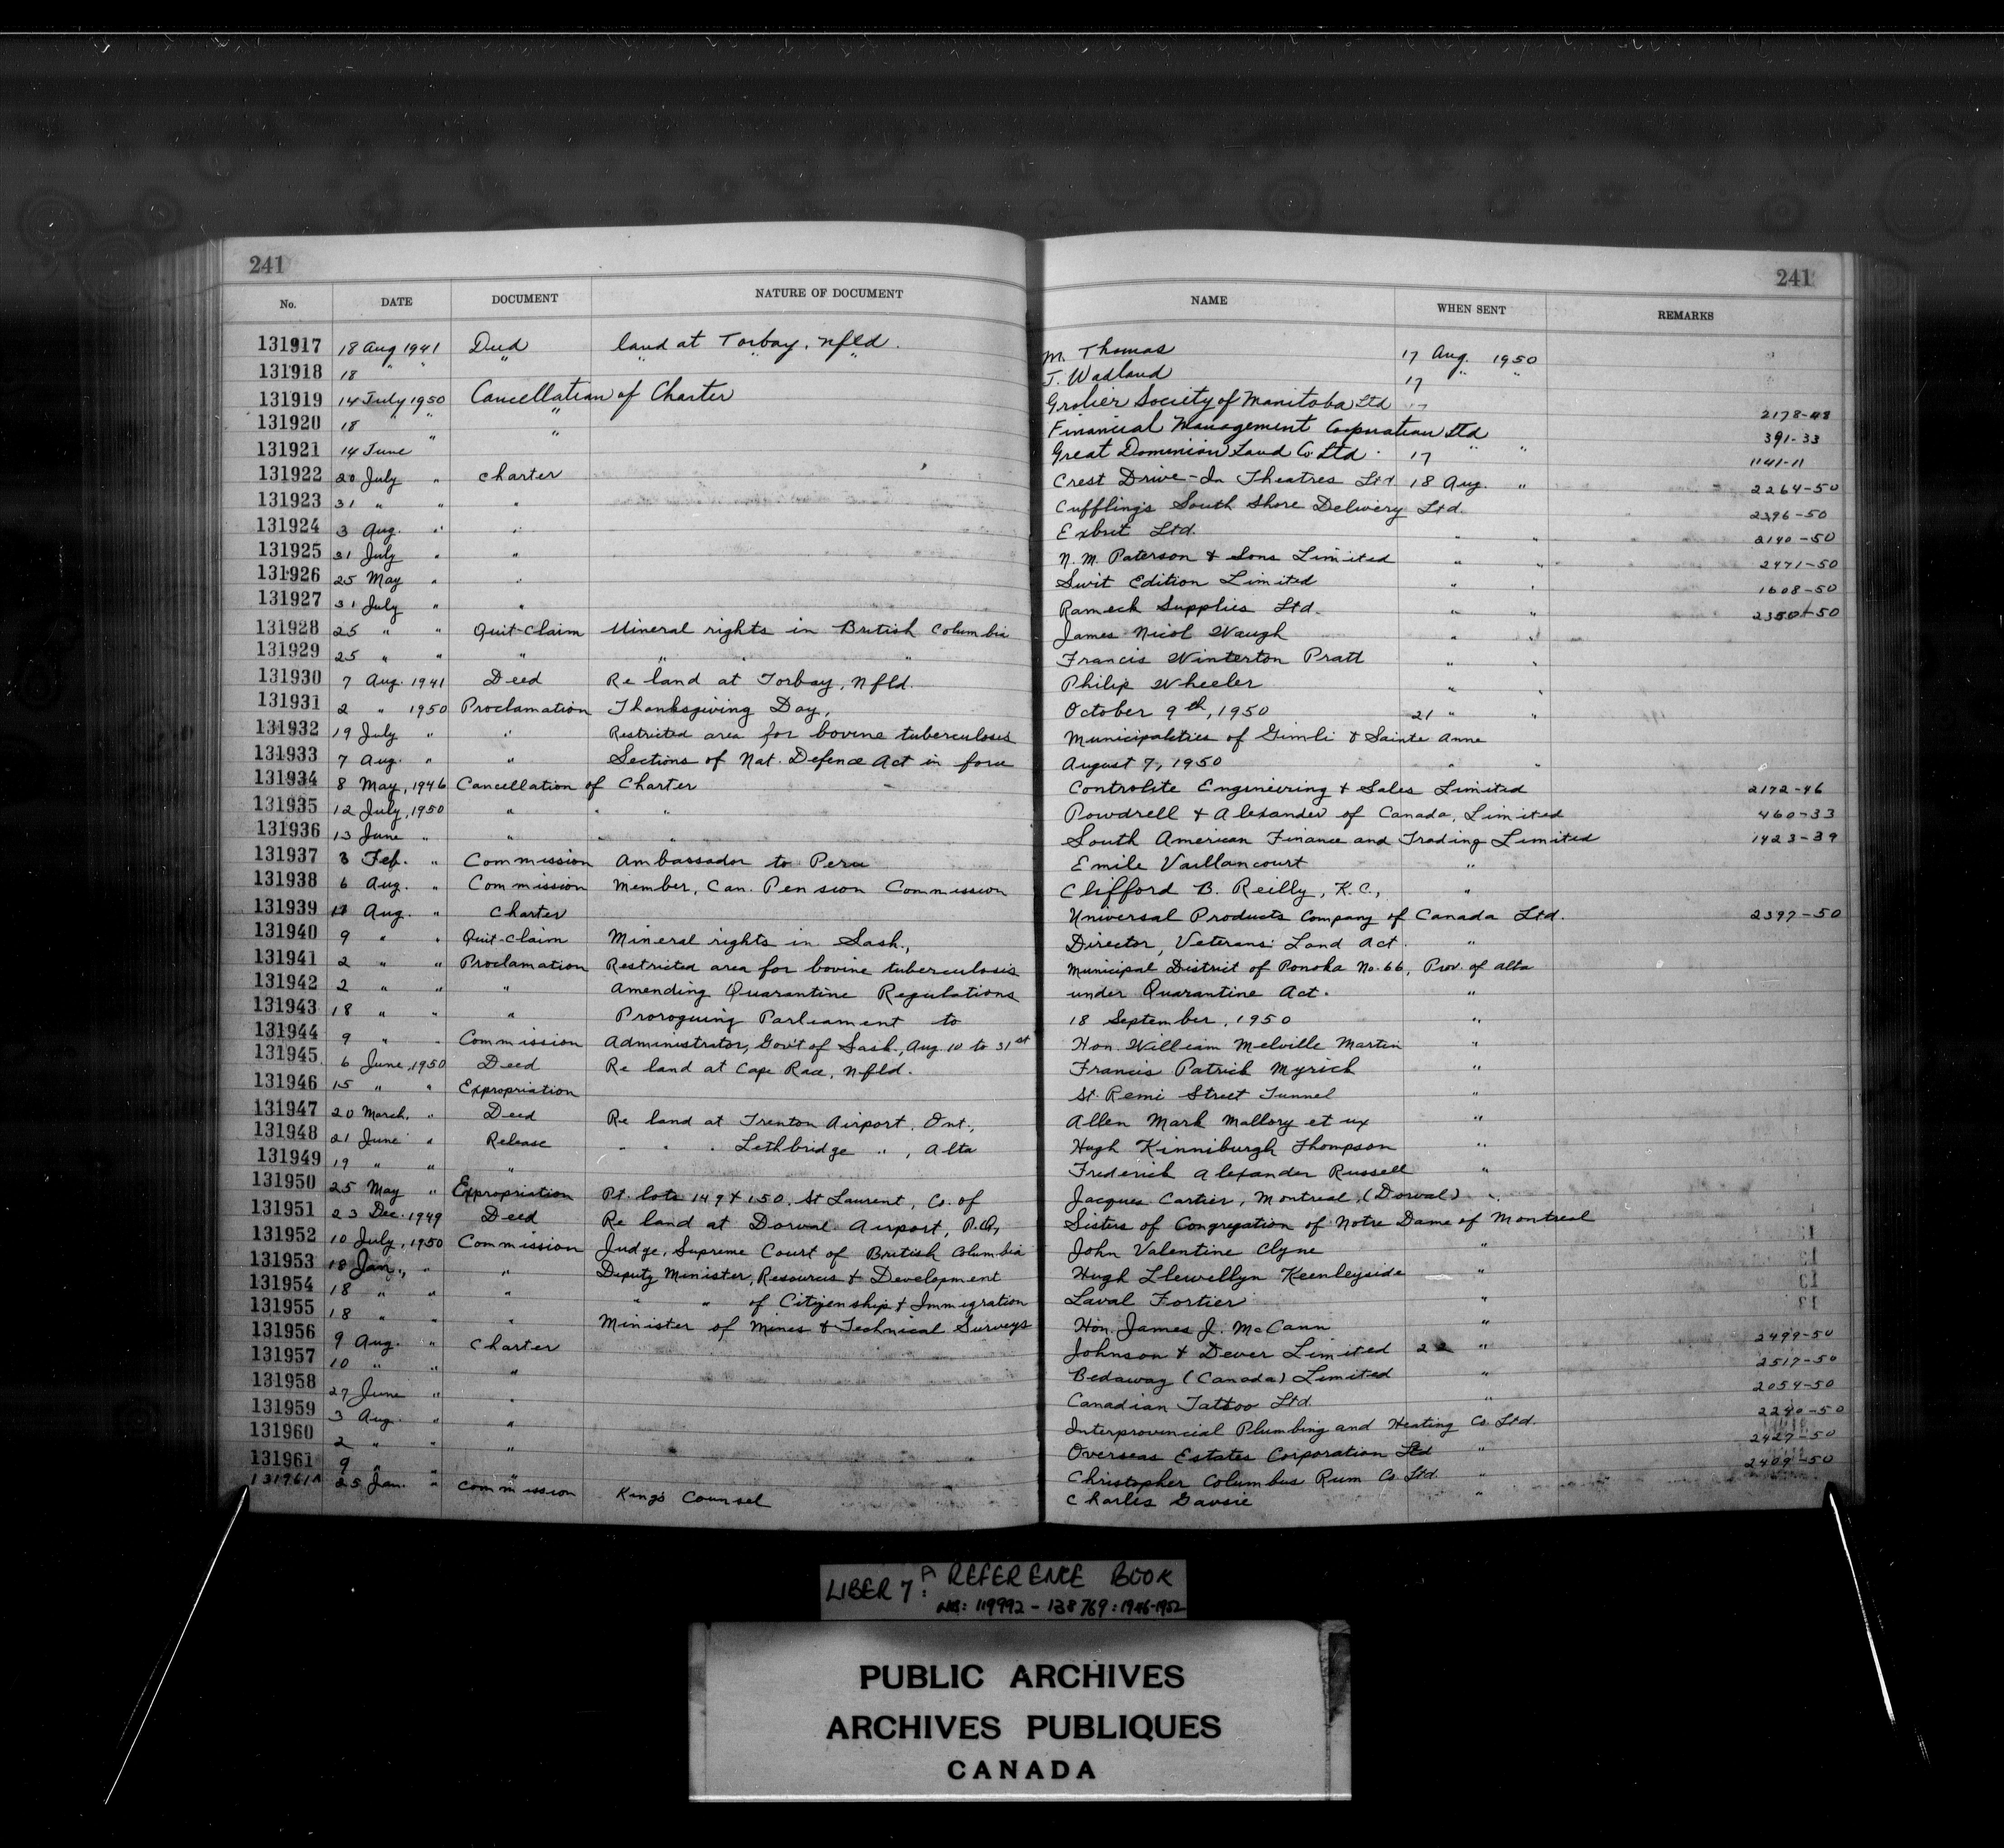 241 241
No. DATE DOCUMENT NATURE OF DOCUMENT NAME WHEN SENT REMARKS
131917 18 Aug 1941 Deed land at Torbay, Nfld. M. Thomas 17 Aug. 1950
131918 18 " " " " " " J. Wadland 17 " "
131919 14 July 1950 Cancellation of Charter Grolier Society of Manitoba Ltd 17 2178-48
131920 18 " " " Financial Management Corporation Ltd 391-33
131921 14 June " " Great Dominion Land Co. Ltd. 17 " " 1141-11
131922 20 July " Charter Crest Drive-In Theatres Ltd 18 Aug. " 2264-50
131923 31 " " " Cuffling's South Shore Delivery Ltd. 2396-50
131924 3 Aug. " " Exbut Ltd. " " 2140-50
131925 31 July " " N. M. Paterson & Sons Limited " " 2471-50
131926 25 May " " Swit Edition Limited " " 1608-50
131927 31 July " " Rameck Supplies Ltd. " " 2350-50
131928 25 " " Quit-Claim Mineral rights in British Columbia James Nicol Waugh " "
131929 25 " " " " " " Francis Winterton Pratt " "
131930 7 Aug. 1941 Deed Re land at Torbay, Nfld. Philip Wheeler " "
131931 2 " 1950 Proclamation Thanksgiving Day, October 9th, 1950 21 " "
131932 19 July " " Restricted area for bovine tuberculosis Municipalities of Gimli & Sainte Anne
131933 7 Aug. " " Sections of Nat. Defence Act in force August 7, 1950 " "
131934 8 May, 1946 Cancellation of Charter Controlite Engineering & Sales Limited 2172-46
131935 12 July, 1950 " " " Powdrell & Alexander of Canada, Limited 460-33
131936 13 June " " " " South American Finance and Trading Limited 1423-39
131937 3 Feb. " Commission Ambassador to Peru Emile Vaillancourt "
131938 6 Aug. " Commission Member, Can. Pension Commission Clifford B. Reilly, K.C., "
131939 11 Aug. " Charter Universal Products Company of Canada Ltd. 2397-50
131940 9 " " Quit-Claim Mineral rights in Sask., Director, Veterans' Land Act. "
131941 2 " " Proclamation Restricted area for bovine tuberculosis Municipal District of Ponoka No. 66, Prov. of Alta
131942 2 " " " Amending Quarantine Regulations under Quarantine Act. "
131943 18 " " " Proroguing Parliament to 18 September, 1950 "
131944 9 " " Commission Administrator, Gov't of Sask., Aug. 10 to 31st Hon. William Melville Martin "
131945 6 June, 1950 Deed Re land at Cape Race, Nfld. Francis Patrick Myrick "
131946 15 " " Expropriation St. Remi Street Tunnel "
131947 20 March, " Deed Re land at Trenton Airport, Ont., Allen Mark Mallory et ux "
131948 21 June " Release " " " Lethbridge " , Alta Hugh Kinniburgh Thompson "
131949 19 " " " Frederick Alexander Russell "
131950 25 May " Expropriation Pt. lots 149 & 150, St Laurent, Co. of Jacques Cartier, Montreal, (Dorval) "
131951 23 Dec. 1949 Deed Re land at Dorval Airport, P.Q., Sisters of Congregation of Notre Dame of Montreal
131952 10 July, 1950 Commission Judge, Supreme Court of British Columbia John Valentine Clyne "
131953 18 Jan., " " Deputy Minister, Resources & Development Hugh Llewellyn Keenleyside "
131954 18 " " " " " of Citizenship & Immigration Laval Fortier "
131955 18 " " " Minister of Mines & Technical Surveys Hon. James J. McCann "
131956 9 Aug. " Charter Johnson & Dever Limited 22 " 2499-50
131957 10 " " " Bedaway (Canada) Limited " 2517-50
131958 27 June " " Canadian Tattoo Ltd " 2054-50
131959 3 Aug. " " Interprovincial Plumbing and Heating Co. Ltd. 2240-50
131960 2 " " " Overseas Estates Corporation Ltd " 2427-50
131961 9 " " " Christopher Columbus Rum Co. Ltd. " 2409-50
131961A 25 Jan. " Commission King's Counsel Charles Gavsie "
LIBER 7A: REFERENCE BOOK
NOS: 119992 - 138769: 1946-1952
PUBLIC ARCHIVES
ARCHIVES PUBLIQUES
CANADA